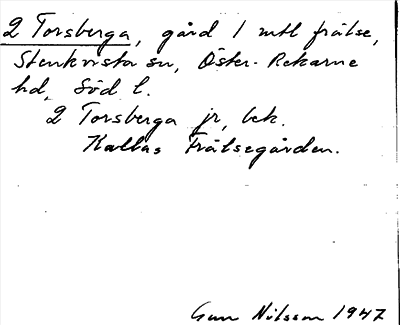 2 Torsberga, gård 1 mtl frälse,
Stenkvista sn, Öster-Rekarne
hd, Söd l.
2 Torsberga jr, bek.
Kallas Frälsegården.
Gun Nilsson 1947